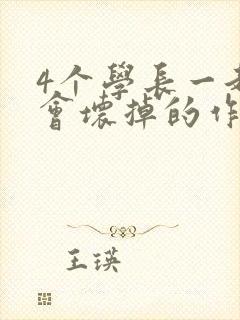 4个學長一
會壞掉的作
王瑛